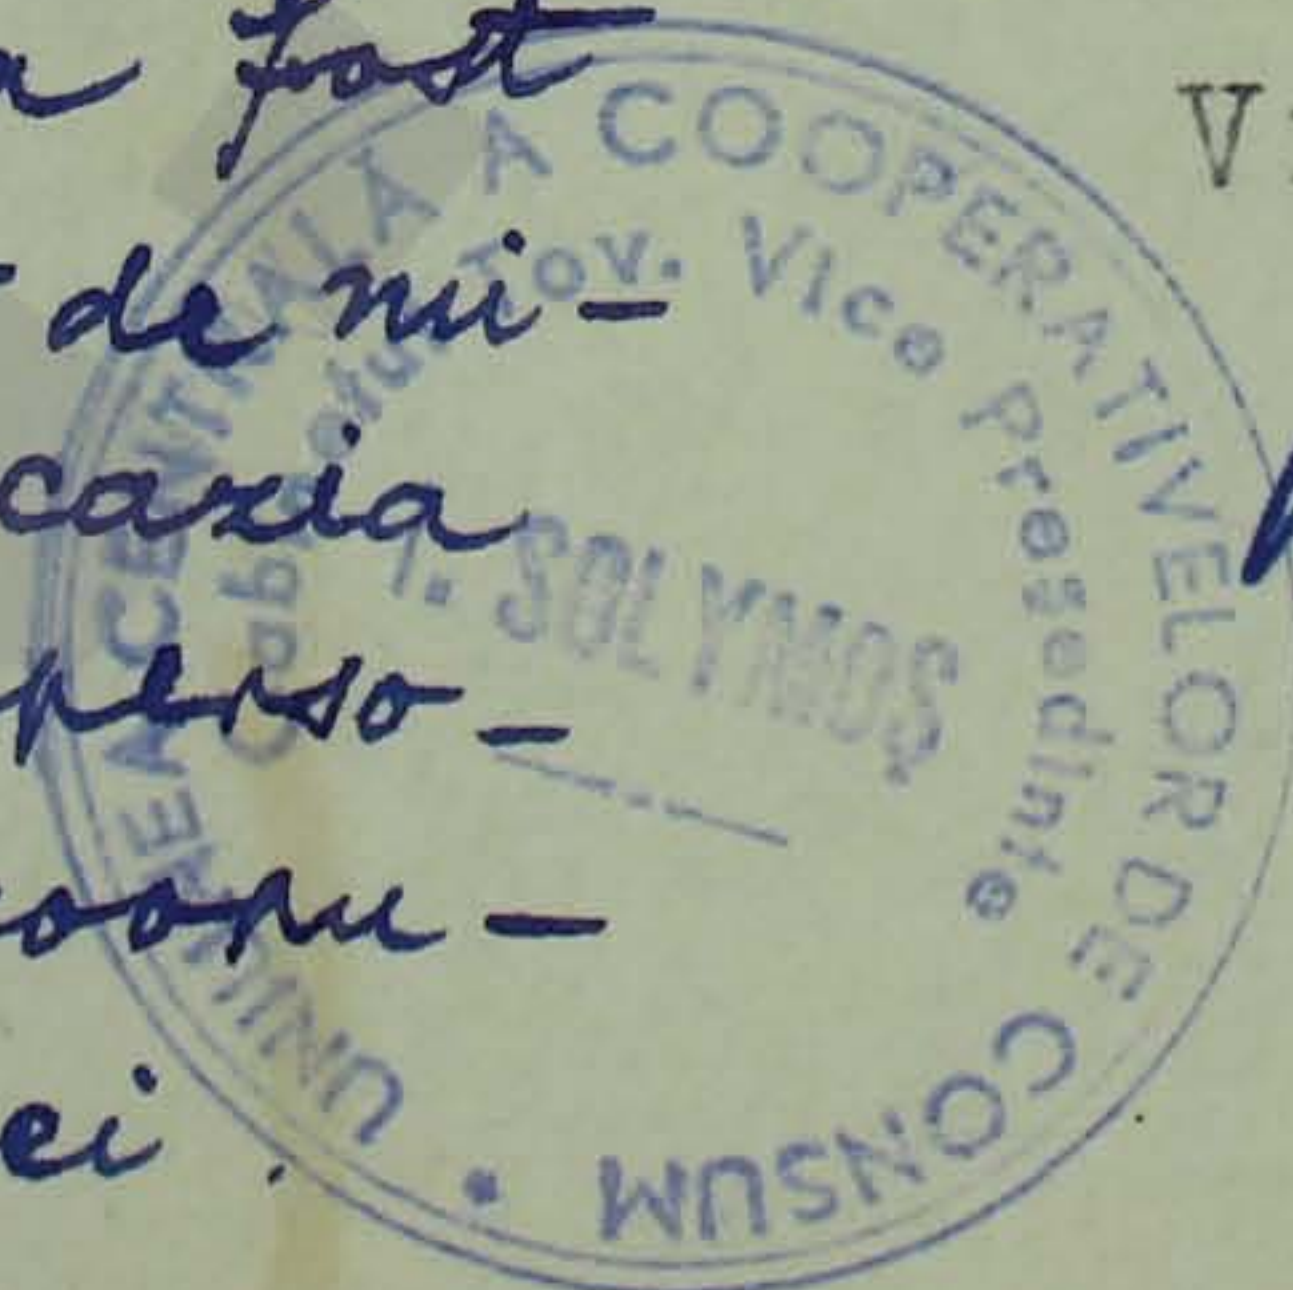 fost
V
de mi-
cazia
perso-
ei.
UNIUNEA CENTRALĂ A COOPERATIVELOR DE CONSUM •
Cabinetul Tov. Vice Președinte
I. SOLYMOS